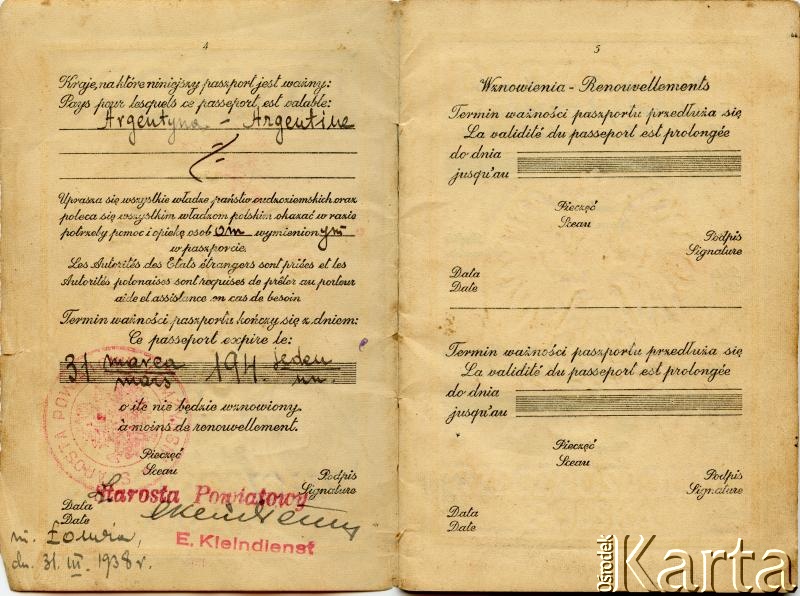 4
Kraje, na które niniejszy paszport jest ważny:
Pays pour lesquels ce passeport est valable:
Argentyna – Argentine
Uprasza się wszystkie władze państw cudzoziemskich oraz
poleca się wszystkim władzom polskim okazać w razie
potrzeby pomoc i opiekę osobom wymienionym
w paszporcie.
Les Autorités des Etats étrangers sont priées et les
Autorités polonaises sont requises de prêter au porteur
aide et assistance en cas de besoin
Termin ważności paszportu kończy się z dniem:
Ce passeport expire le:
31 marca 194. jeden
mars un.
o ile nie będzie wznowiony.
à moins de renouvellement.
Pieczęć
Sceau
Podpis
Signature
Starosta Powiatowy
Data
Date
E. Kleindienst
m. Łomża,
dn. 31. III. 1938 r.
STAROSTA POW
5
Wznowienia - Renouvellements
Termin ważności paszportu przedłuża się
La validité du passeport est prolongée
do dnia
jusqu'au
Pieczęć
Sceau
Podpis
Signature
Data
Date
Termin ważności paszportu przedłuża się
La validité du passeport est prolongée
do dnia
jusqu'au
Pieczęć
Sceau
Podpis
Signature
Data
Date
Ośrodek
Karta